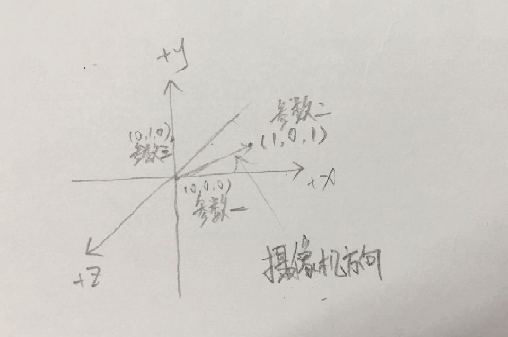 +y
参数二
(0,1,0)
参数三
(1,0,1)
+x
(0,0,0)
参数一
摄像机方向
+z